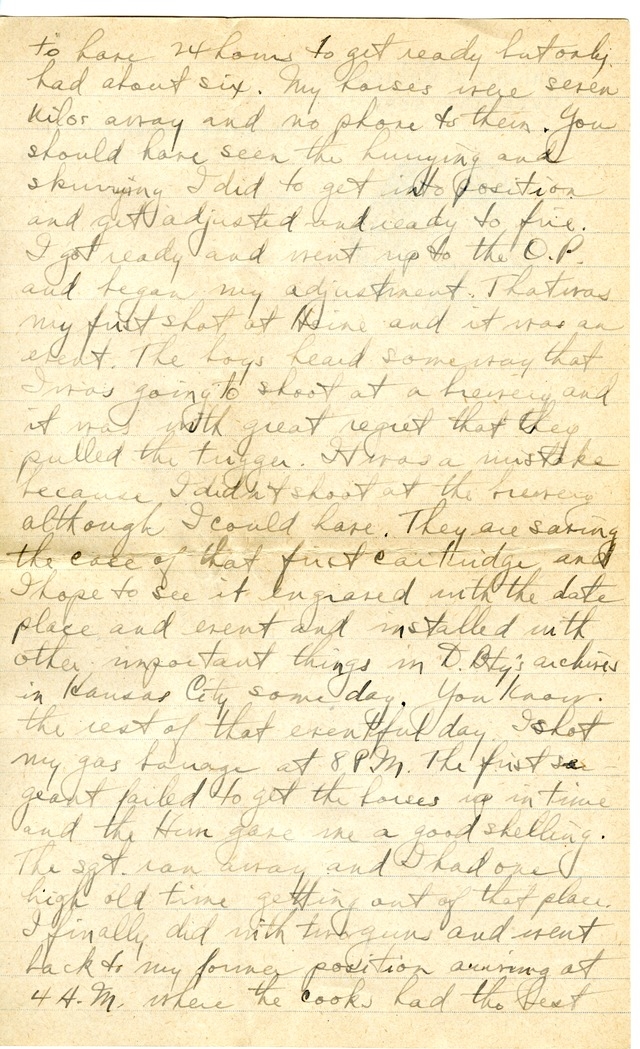 to have 24 hours to get ready but only
had about six. My horses were seven
kilos away and no phone to them. You
should have seen the hurrying and
skurrying I did to get into position
and get adjusted and ready to fire.
I got ready and went up to the O.P.
and began my adjustment. That was
my first shot at Heine and it was an
event. The boys heard some way that
I was going to shoot at a brewery and
it was with great regret that they
pulled the trigger. It was a mistake
because I didn't shoot at the brewery
although I could have. They are saving
the case of that first cartridge and
I hope to see it engraved with the date
place and event and installed with
other important things in D. Bty's archives
in Kansas City some day. You know
the rest of that eventful day. I shot
my gas barrage at 8 P.M. The first se
geant failed to get the horses up in time
and the Hun gave me a good shelling.
The sgt. ran away and I had one
high old time getting out of that place.
I finally did with two guns and went
back to my former position arriving at
4 A.M. where the cooks had the best